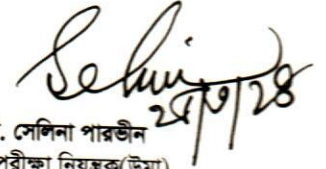 Selin
. সেলিনা পারভীন
পরীক্ষা নিয়ন্ত্রক(উমা)